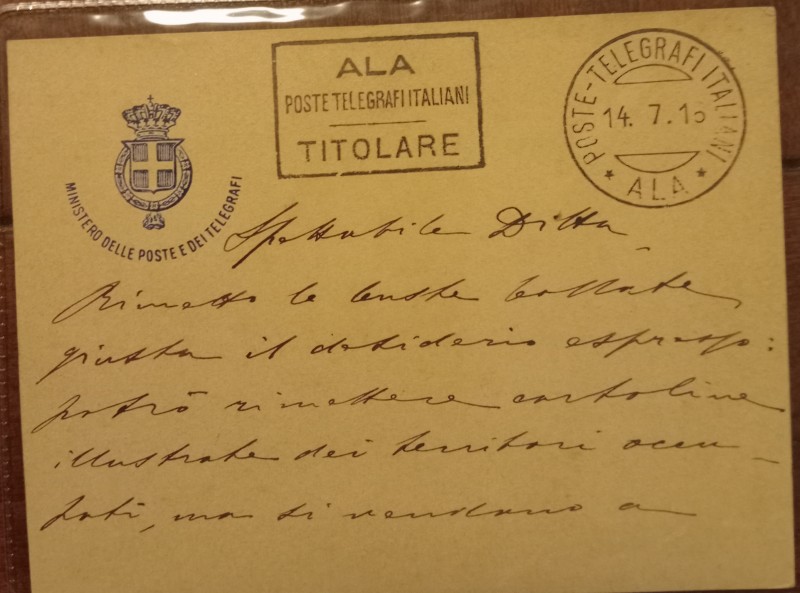 ALA
POSTE TELEGRAFI ITALIANI
TITOLARE
POSTE-TELEGRAFI ITALIANI
14. 7. 15
* ALA *
MINISTERO DELLE POSTE E DEI TELEGRAFI
Spettabile Ditta
Rimetto le buste bollate
giusta il desiderio espresso:
potrò rimettere cartoline
illustrate dei territori occu-
pati, ma si vendono a